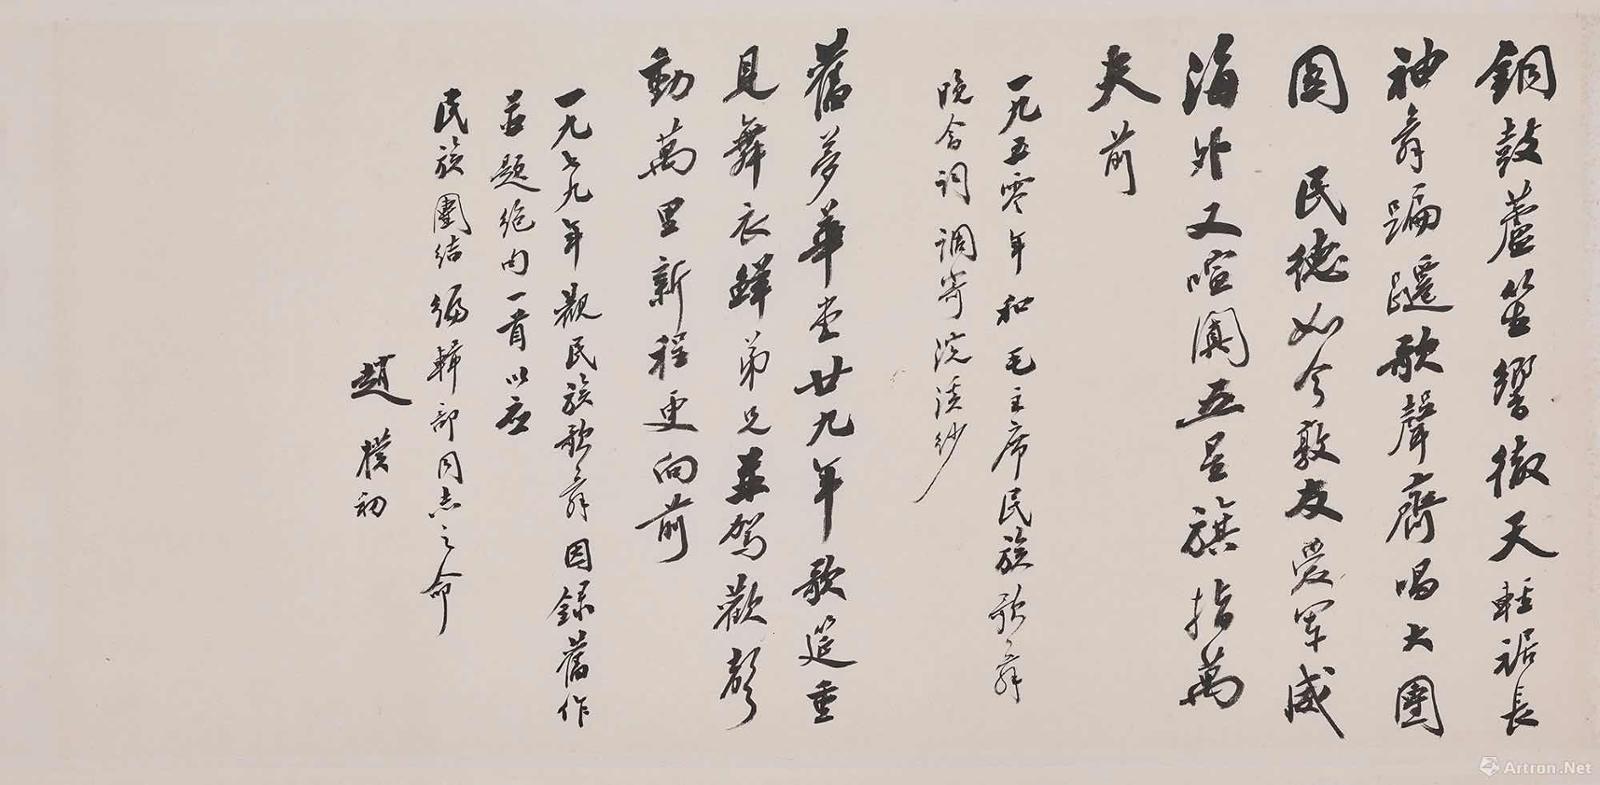 銅鼓蘆笙響徹天輕裾長
袖舞蹁躚歌聲齊唱大團
圓 民德如今敦友愛軍威
海外又喧闐五星旗指萬
夫前
一九五零年和毛主席民族歌舞
晚會詞調寄浣溪紗
舊夢華堂廿九年歌筵重
見舞衣鮮弟兄並駕歡聲
動萬里新程更向前
一九七九年觀民族歌舞因錄舊作
並題絕句一首以應
民族團結編輯部同志之命
趙樸初
Artron.Net